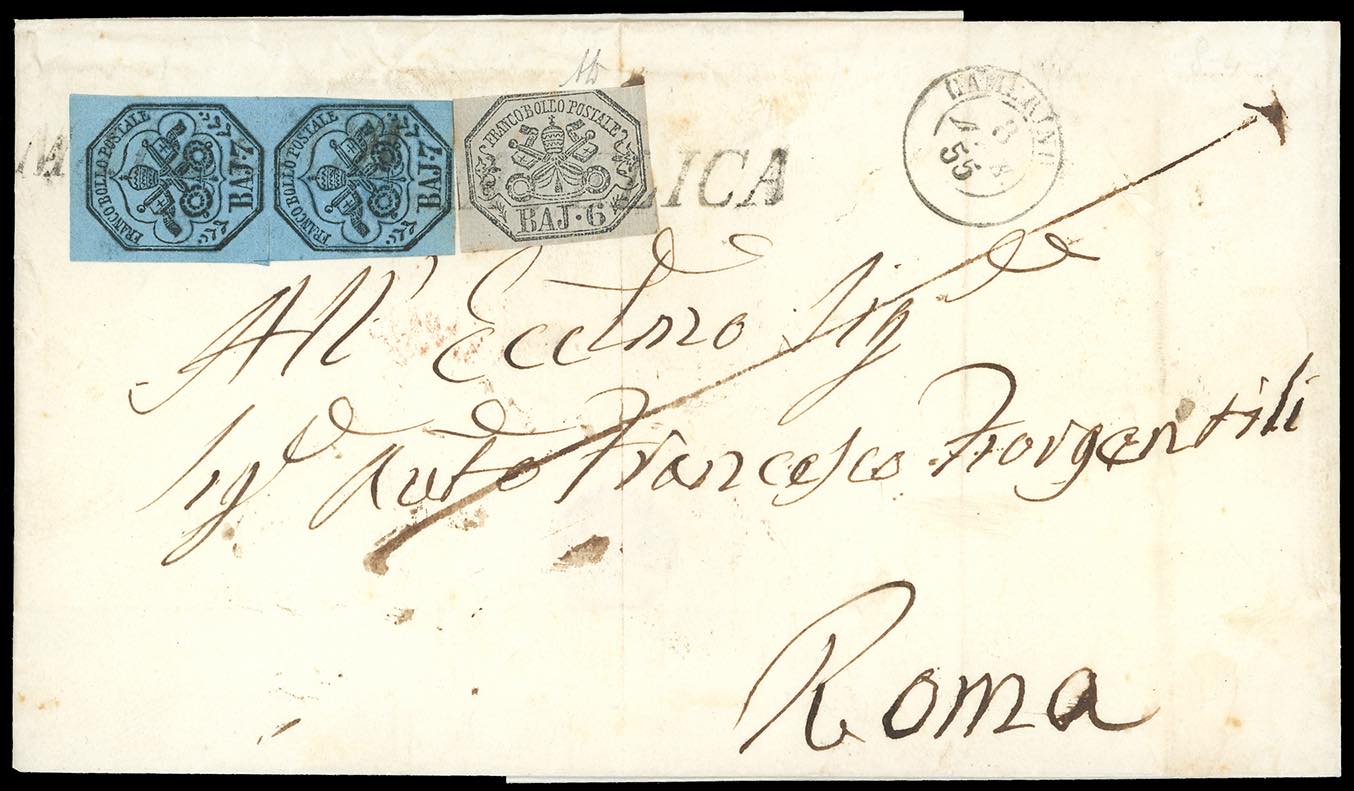 FRANCO BOLLO POSTALE
BAJ·7
FRANCO BOLLO POSTALE
BAJ·7
FRANCO BOLLO POSTALE
BAJ·6
LICA
CAMERINO
55
All' Ecclmo Sig
Sig Francesco Fiorgentili
Roma